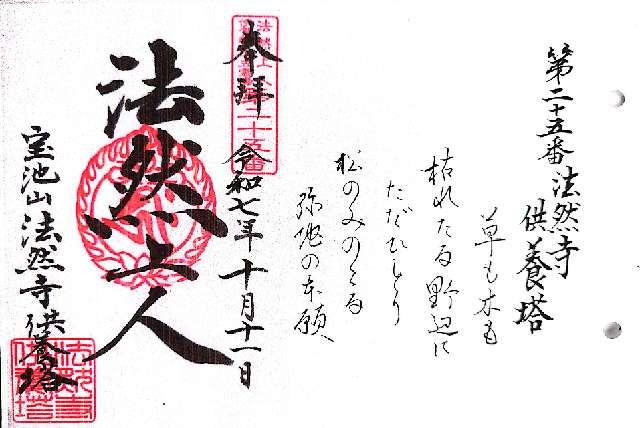 第二十五番 法然寺
供養塔
草も木も
枯れたる野辺に
ただひとり
松のみのこる
弥陀の本願
奉拝 令和七年十月十一日
二十五番
法然上人
宝池山 法然寺 供養塔